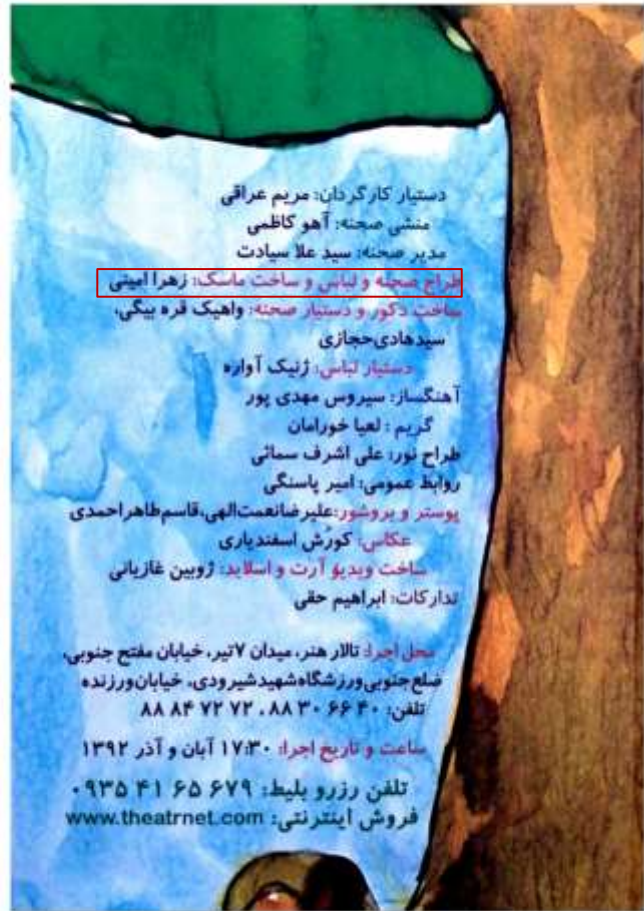 دستیار کارگردان: مریم عراقی
منشی صحنه: آهو کاظمی
مدیر صحنه: سید علا سیادت
طراح صحنه و لباس و ساخت ماسک: زهرا امینی
ساخت دکور و دستیار صحنه: واهیک قره بیگی،
سیدهادی‌حجازی
دستیار لباس: ژنیک آواره
آهنگساز: سیروس مهدی پور
گریم : لعیا خورامان
طراح نور: علی اشرف سمائی
روابط عمومی: امیر پاسنگی
پوستر و بروشور:علیرضانعمت‌الهی،قاسم‌طاهراحمدی
عکاس: کورُش اسفندیاری
ساخت ویدیو آرت و اسلاید: ژوبین غازیانی
تدارکات: ابراهیم حقی
محل اجرا: تالار هنر، میدان ۷تیر، خیابان مفتح جنوبی،
ضلع‌جنوبی‌ورزشگاه‌شهیدشیرودی، خیابان‌ورزنده
تلفن: ۴۰ ۶۶ ۳۰ ۸۸ ، ۷۲ ۷۲ ۸۴ ۸۸
ساعت و تاریخ اجرا: ۱۷:۳۰ آبان و آذر ۱۳۹۲
تلفن رزرو بلیط: ۶۷۹ ۶۵ ۴۱ ۰۹۳۵
فروش اینترنتی: www.theatrnet.com